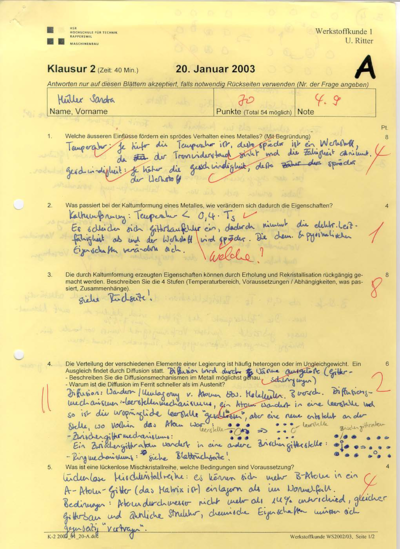 HSR
HOCHSCHULE FÜR TECHNIK
RAPPERSWIL
MASCHINENBAU
Werkstoffkunde 1
U. Ritter
Klausur 2 (Zeit: 40 Min.) 20. Januar 2003
A
Antworten nur auf diesen Blättern akzeptiert, falls notwendig Rückseiten verwenden (Nr. der Frage angeben)
Müller Sandra 20 4.9
Name, Vorname Punkte (Total 54 möglich) Note
Pt.
1. Welche äusseren Einflüsse fördern ein sprödes Verhalten eines Metalles? (Mit Begründung) 8
Temperatur: Je tiefer die Temperatur ist, desto spröder ist ein Werkstoff,
da der Trennwiderstand sinkt und die Zähigkeit abnimmt.
Geschwindigkeit: Je höher die Geschwindigkeit, desto spröder
der Werkstoff
4
2. Was passiert bei der Kaltumformung eines Metalles, wie verändern sich dadurch die Eigenschaften? 4
Kaltumformung: Temperatur < 0,4 · Ts
Es schleichen sich Gitterbaufehler ein, dadurch nimmt die elektr. Leit-
fähigkeit ab und der Werkstoff wird spröder. Die chem. & physikalischen
Eigenschaften verändern sich.
welche?
1
3. Die durch Kaltumformung erzeugten Eigenschaften können durch Erholung und Rekristallisation rückgängig ge-
macht werden. Beschreiben Sie die 4 Stufen (Temperaturbereich, Voraussetzungen / Abhängigkeiten, was pas-
siert, Zusammenhänge). 8
siehe Rückseite!
8
4. Die Verteilung der verschiedenen Elemente einer Legierung ist häufig heterogen oder im Ungleichgewicht. Ein
Ausgleich findet durch Diffusion statt. Diffusion wird durch Wärme ausgelöst (Gitter-
- Beschreiben Sie die Diffusionsmechanismen im Metall möglichst genau. schwingungen)
- Warum ist die Diffusion im Ferrit schneller als im Austenit?
Diffusion: Wandern / Umlagerung v. Atomen bzw. Molekülen. Diffusions-
mechanismen: - Leerstellenmechanismus, ein Atom wandert in eine Leerstelle und
so ist die ursprüngliche Leerstelle "geschlossen", aber eine neue entsteht an der
Stelle, wo vorhin das Atom war.
- Zwischengittermechanismus:
Ein Zwischengitteratom wandert in eine andere Zwischengitterstelle:
- Ringmechanismus: siehe Blattrückseite!
2
5. Was ist eine lückenlose Mischkristallreihe, welche Bedingungen sind Voraussetzung? 4
Lückenlose Mischkristallreihe: es können sich mehr B-Atome in ein
A-Atom-Gitter (das Matrix ist) einlagern als im Normalfall.
Bedingungen: Atomdurchmesser nicht mehr als ±14% unterschied, gleicher
Gitterbau und ähnliche Struktur, chemische Eigenschaften müssen sich
gegenseitig "vertragen".
4
Werkstoffkunde WS2002/03, Seite 1/2